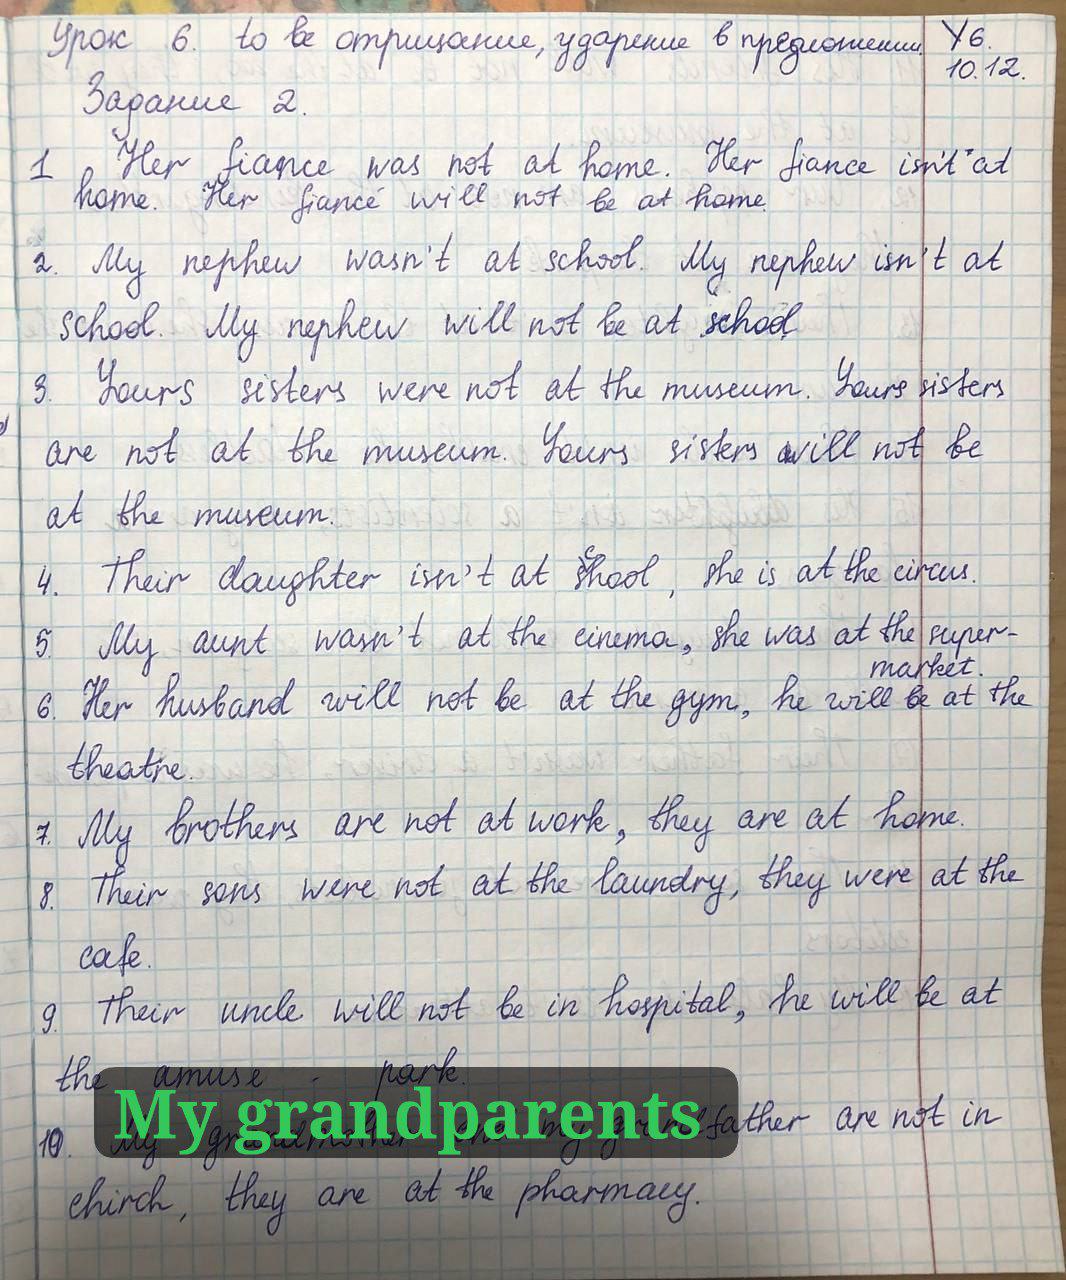 Урок 6. to be отрицание, ударение в предложении. У6.
10.12.
Задание 2.
1 Her fiance was not at home. Her fiance isn't at
home. Her fiancé will not be at home.
2. My nephew wasn't at school. My nephew isn't at
school. My nephew will not be at school.
3. Yours sisters were not at the museum. Yours sisters
are not at the museum. Yours sisters will not be
at the museum.
4. Their daughter isn't at school, she is at the circus.
5. My aunt wasn't at the cinema, she was at the super-
market.
6. Her husband will not be at the gym, he will be at the
theatre.
7. My brothers are not at work, they are at home.
8. Their sons were not at the laundry, they were at the
cafe.
9. Their uncle will not be in hospital, he will be at
the amuse - park.
My grandparents
10. My grandmother and my grandfather are not in
chirch, they are at the pharmacy.